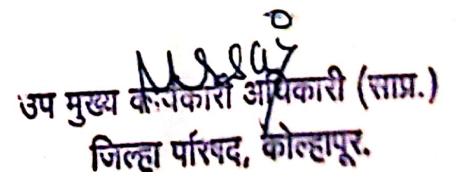 उप मुख्य कार्यकारी अधिकारी (साप्र.)
जिल्हा परिषद, कोल्हापूर.